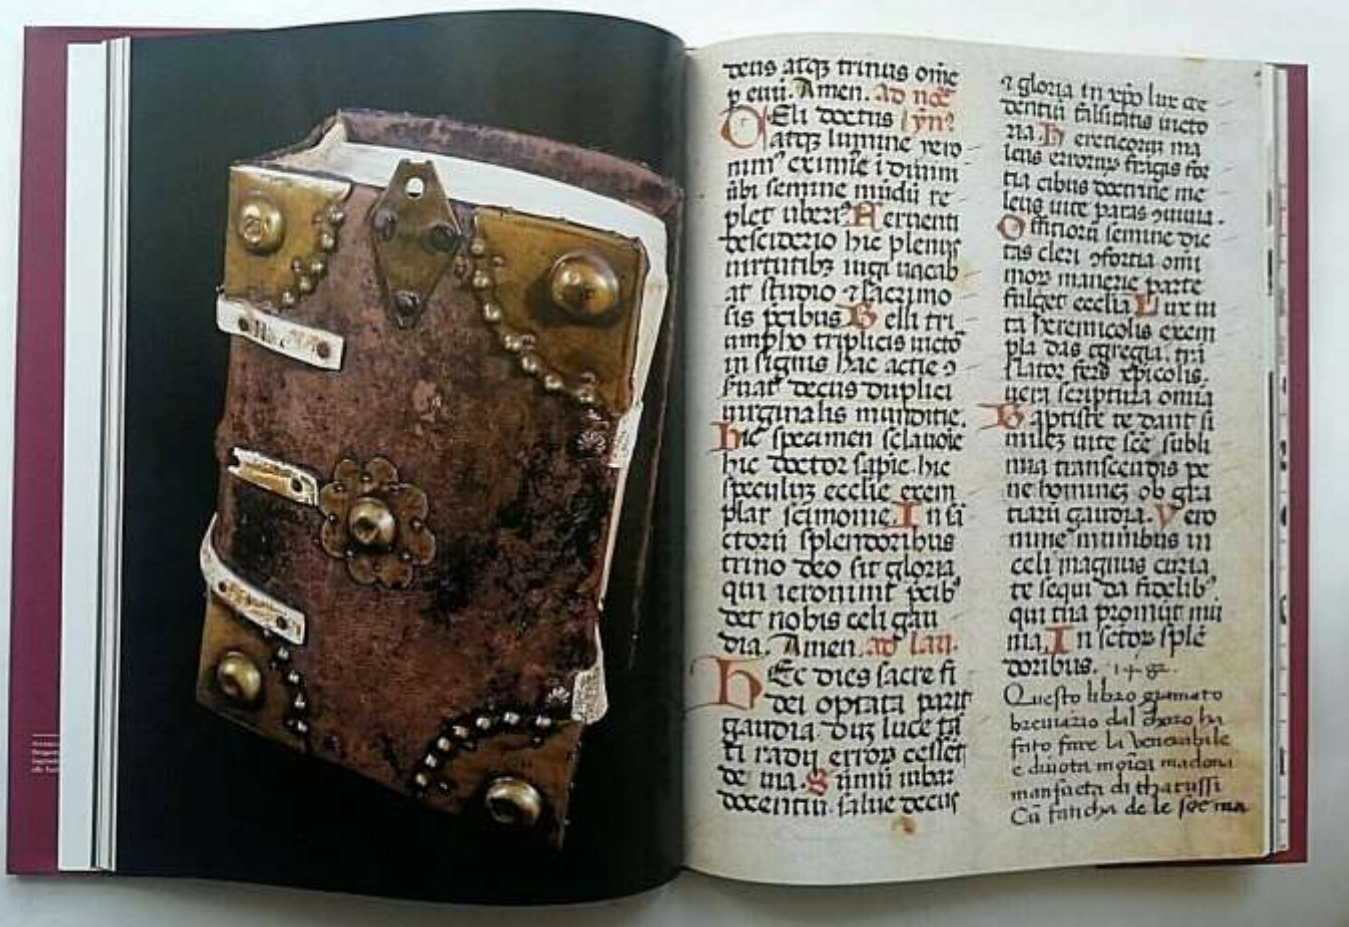 deus atq3 trinus om̄e
p euū. Amen. ad noc̄
Eli doctus ẏn?
atq3 lumine vero
num' eximie i diuini
ūbi semine mūdū re
plet uberi? Aeruenti
desiderio hic plenus
uirtutib3 iugi uacab
at studio ⁊ sacrimo
sis p̄cibus Belli tri
umpho triplicis uicto
in signis hac actie ꝯ
seruat decus duplici
uirginalis munditie.
hic specimen sclauoie
hic doctor sapie. hic
speculū ecclie exem
plar scimonie. In sā
ctorū splendoribus
trino deo sit gloria
qui ieronimi p̄cib'
det nobis celi gau
dia. Amen. ad lau.
hEc dies sacre fi
dei optata parit
gaudia dū luce ta
ti radij error cesset
de uia. Summi iubar
docentiū. salue decus
⁊ gloria in xp̄o lux cre
dentiū falsitatis uicto
ria hereticorū ma
lens errorum frigis for
tia cibus doctrine me
leus uite paras ꝯuiuia.
Offitiorū semine die
tas cleri ꝯfortia omi
mor manerie parte
fulget ecclia Lux in
ta heremicolis exem
pla das egregia. trā
slator ferd xp̄icolis.
ueri scriptura omia
Baptiste te dant si
milez uite scē subli
mia transcendis pe
ne homines ob gla
tiarū gaudia. Vero
mine munibus in
celi magnus curia
te sequi da fidelib'
qui tua promūt mū
nia. In sctor splē
doribus. 1482.
Questo libro giamato
breuiario dal choro ha
fato fare la venerabile
e diuota moica madona
mansueta di tharussi
Cū fancha de le soe ma